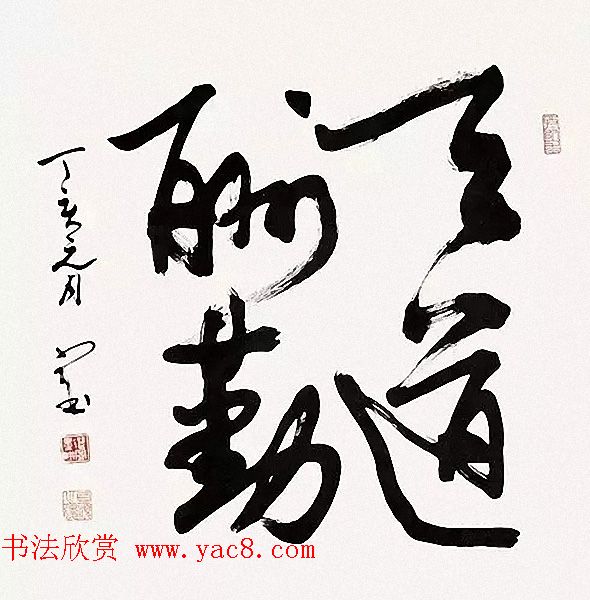 天道
酬勤
丁亥元月
书法欣赏 www.yac8.com